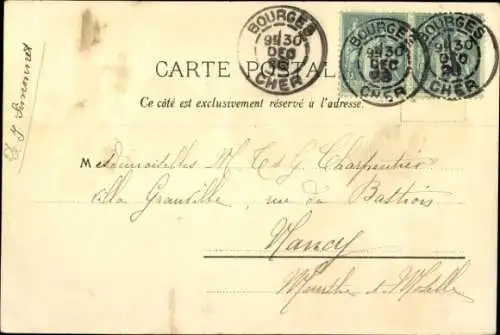 BOURGES
9E 30
DEC
98
CHER
BOURGES
9E 30
DEC
98
CHER
BOURGES
9E 30
DEC
CHER
CARTE POSTALE
Ce côté est exclusivement réservé à l'adresse.
Simonnet
Mesdemoiselles M. T & G Charpentier
villa Granville, rue du Bastion
Nancy
Meurthe et Moselle